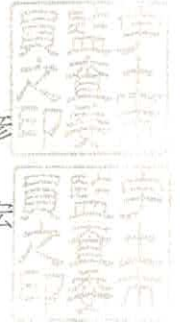 宇土市
監査委
員之印
宇土市
監査委
員之印